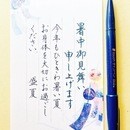 暑中御見舞
申し上げます
今年もひときわ暑い夏
お身体を大切にお過ごし
ください
盛夏